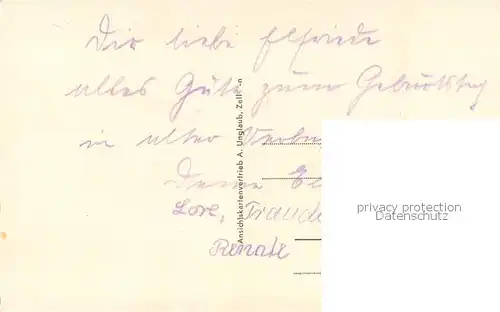 Dir liebe Elfriede
alles Gute zum Geburtstag
in alter
Deine
Lore, Traude
Renate
Ansichtskartenvertrieb A. Unglaub, Zell
privacy protection
Datenschutz